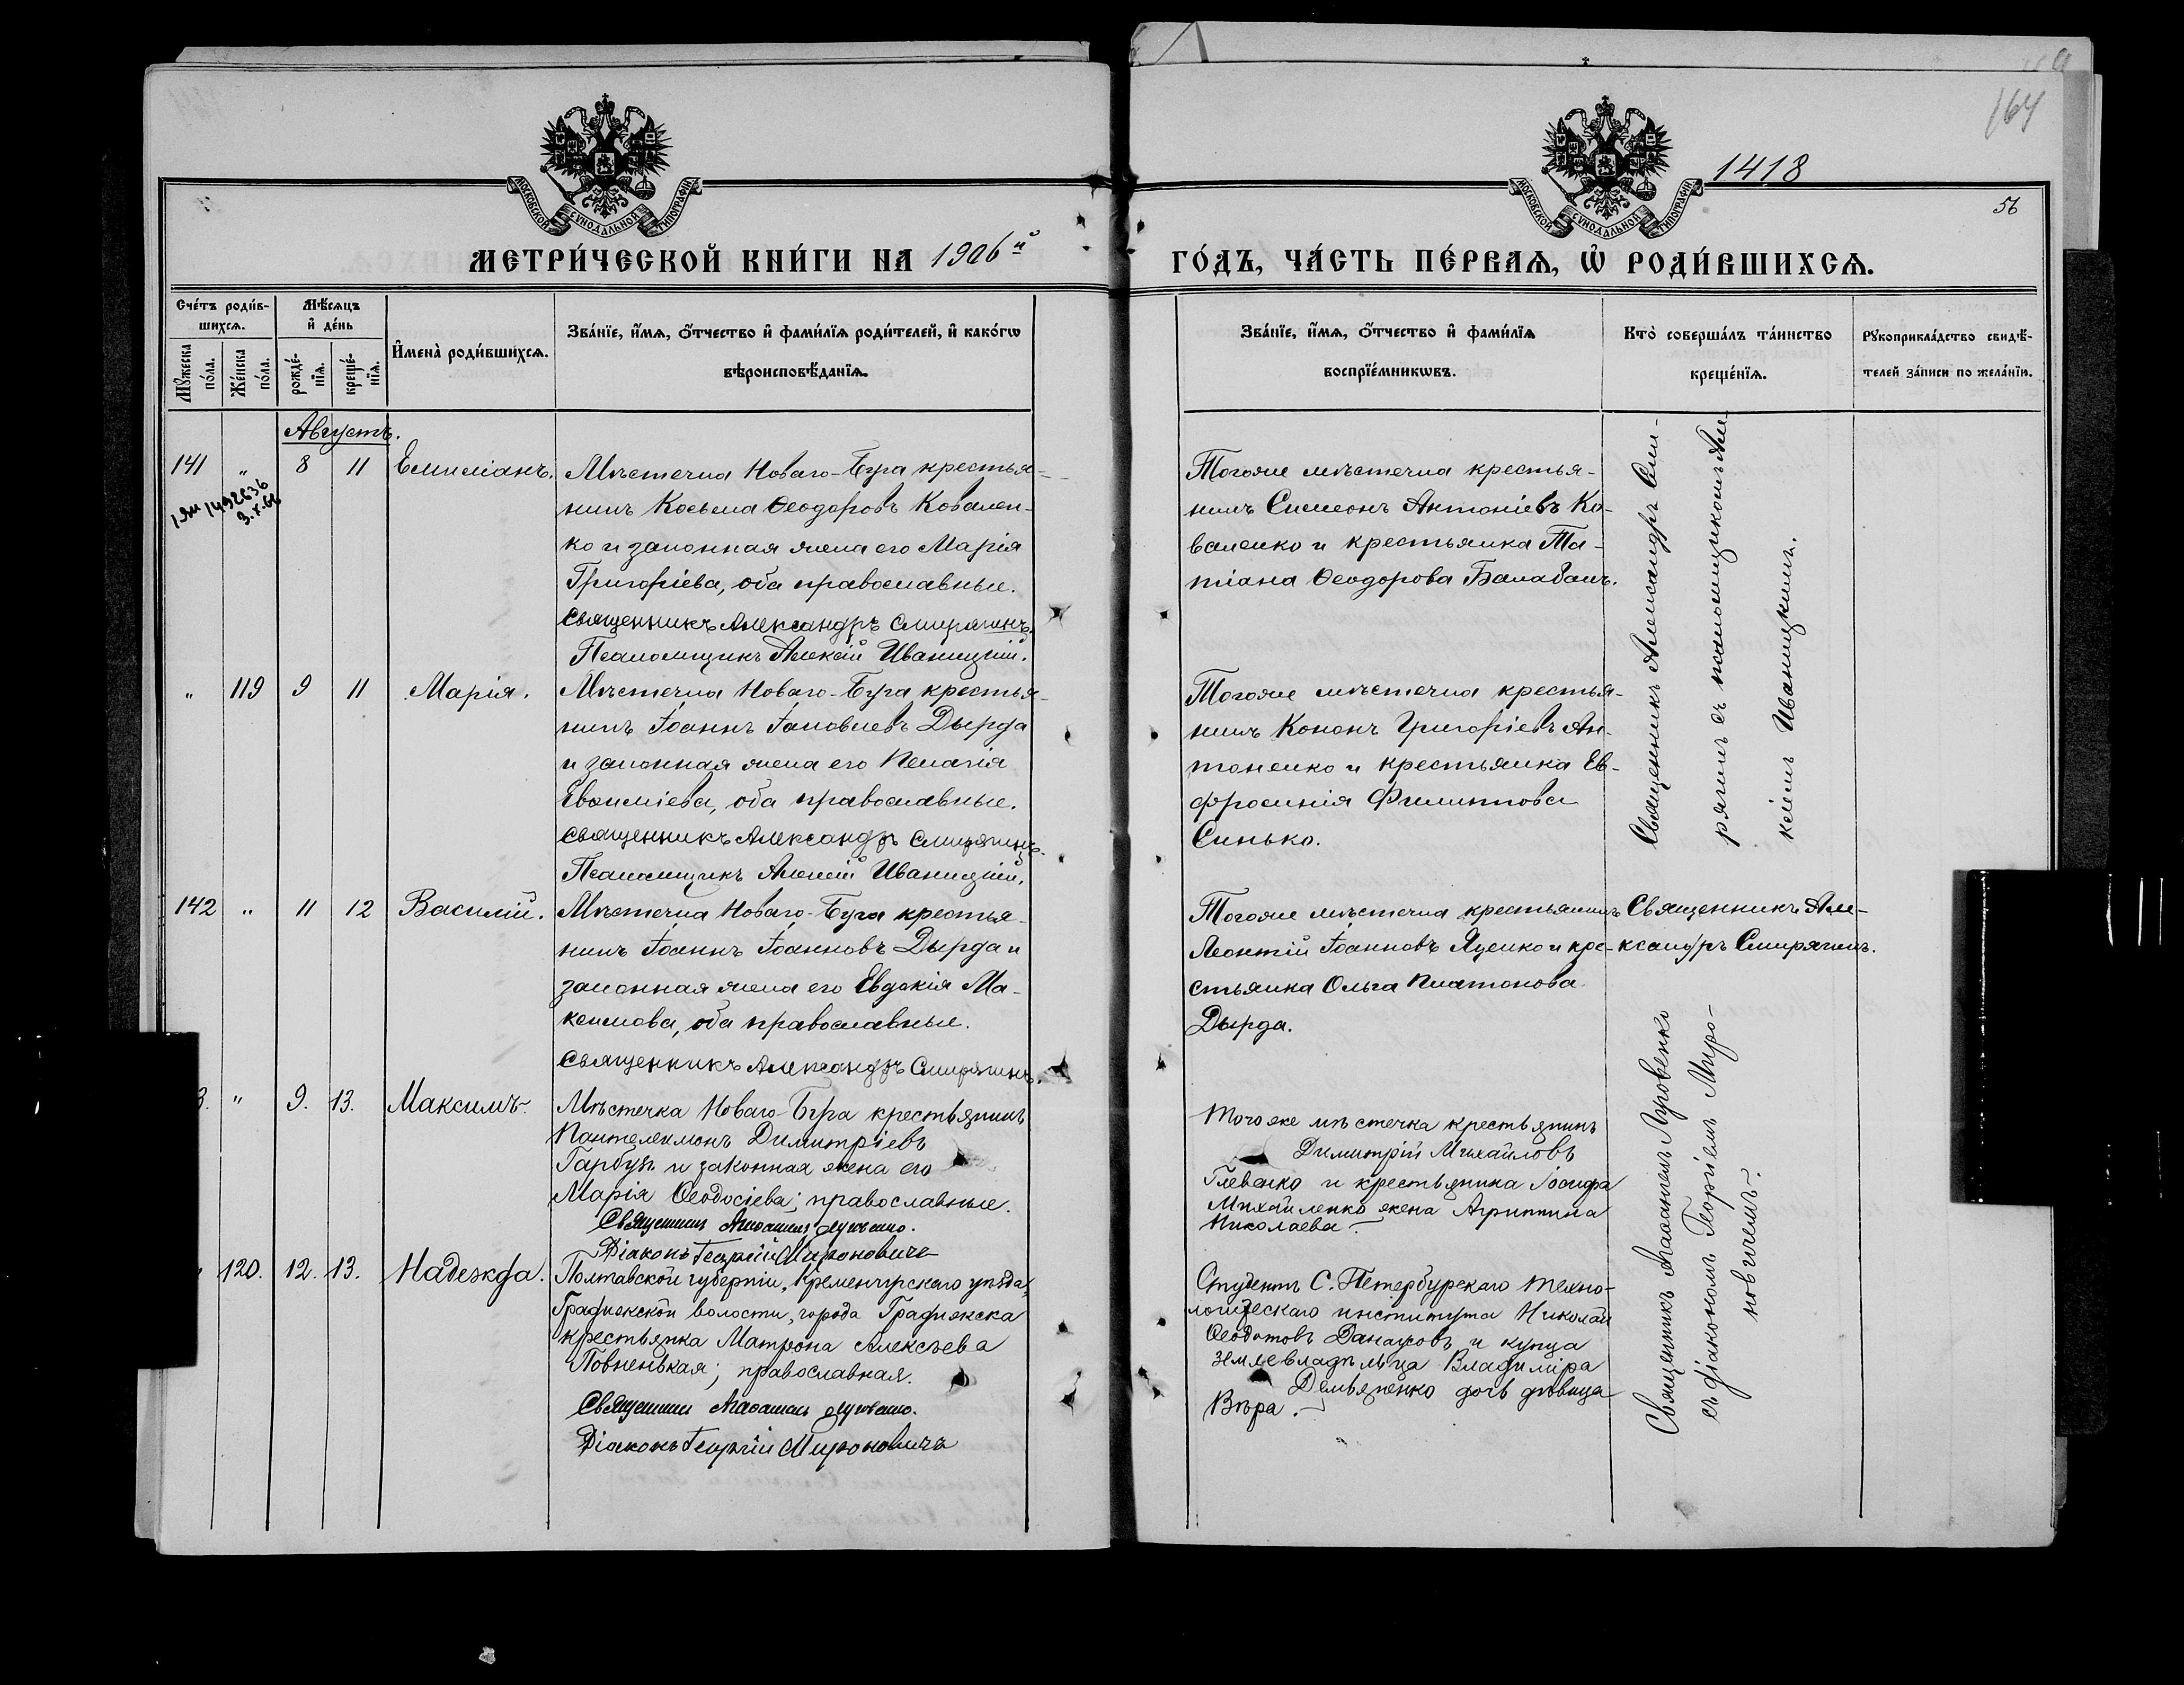 164
1418
56
МОСКОВСКОЙ СѴНОДАЛЬНОЙ ТИПОГРАФІИ
МОСКОВСКОЙ СѴНОДАЛЬНОЙ ТИПОГРАФІИ
МЕТРИ́ЧЕСКОЙ КНИ́ГИ НА 1906й
ГО́ДЪ, ЧА́СТЬ ПЕ́РВАѦ, Ѽ РОДИ́ВШИХСѦ.
Сче́тъ роди́в-
шихсѧ.
Мѣ́сѧцъ
и҆ де́нь
Мꙋ́жеска
по́ла.
Же́нска
по́ла.
рожде́-
нїѧ.
креще́-
нїѧ.
И҆мена̀ роди́вшихсѧ.
Зва́нїе, и҆́мѧ, ѻ҆́тчество и҆ фами́лїѧ роди́телей, и҆ како́гѡ
вѣроисповѣ́данїѧ.
Зва́нїе, и҆́мѧ, ѻ҆́тчество и҆ фами́лїѧ
воспрїе́мникѡвъ.
Кто̀ соверша́лъ та́инство
креще́нїѧ.
Рꙋкоприкла́дство свидѣ́-
телей за́писи по жела́нїю.
Августъ.
141 " 8 11 Емиліанъ.
3.X.66
Мѣстечка Новаго-Буга крестья-
нинъ Косьма Ѳеодоровъ Ковален-
ко и законная жена его Марія
Григоріева, оба православные.
Священникъ Александръ Смирягинъ.
Псаломщикъ Алексій Иваницкій.
Тогоже мѣстечка крестья-
нинъ Симеонъ Антоніевъ Ко-
валенко и крестьянка Та-
тіана Ѳеодорова Балабанъ.
Священникъ Александръ Сми-
рягинъ съ псаломщикомъ Але-
ксіемъ Иваницкимъ.
" 119 9 11 Марія.
Мѣстечка Новаго-Буга крестья-
нинъ Іоаннъ Іаковлевъ Дырда
и законная жена его Пелагія
Евѳиміева, оба православные.
Священникъ Александръ Смирягинъ.
Псаломщикъ Алексій Иваницкій.
Тогоже мѣстечка крестья-
нинъ Кононъ Григоріевъ Ан-
тоненко и крестьянка Ев-
фросинія Филиппова
Синько.
142 " 11 12 Василій.
Мѣстечка Новаго-Буга крестья-
нинъ Іоаннъ Іоанновъ Дырда и
законная жена его Евдокія Ма-
ксимова, оба православные.
Священникъ Александръ Смирягинъ.
Тогоже мѣстечка крестьянинъ
Леонтій Іоанновъ Яценко и кре-
стьянка Ольга Платонова
Дырда.
Священникъ Але-
ксандръ Смирягинъ.
3. " 9. 13. Максимъ.
Мѣстечка Новаго-Буга крестьянинъ
Пантелеимонъ Димитріевъ
Гарбузъ и законная жена его
Марія Ѳеодосіева; православные.
Діаконъ Георгій Мироновичъ
Тогоже мѣстечка крестьянинъ
Димитрій Михайловъ
Глевацко и крестьянина Іосифа
Михайленко жена Агриппина
Николаева.
Священникъ Аѳанасій Луговенко
съ діакономъ Георгіемъ Миро-
новичемъ.
120. 12. 13. Надежда.
Полтавской губерніи, Кременчугскаго уѣзда,
Градижской волости, города Градижска
крестьянка Матрона Алексѣева
Повненькая; православная.
Діаконъ Георгій Мироновичъ
Студентъ С. Петербургскаго техно-
логическаго института Николай
Ѳеодотовъ Данауровъ и купца
землевладѣльца Владиміра
Демьяненко дочь дѣвица
Вѣра.